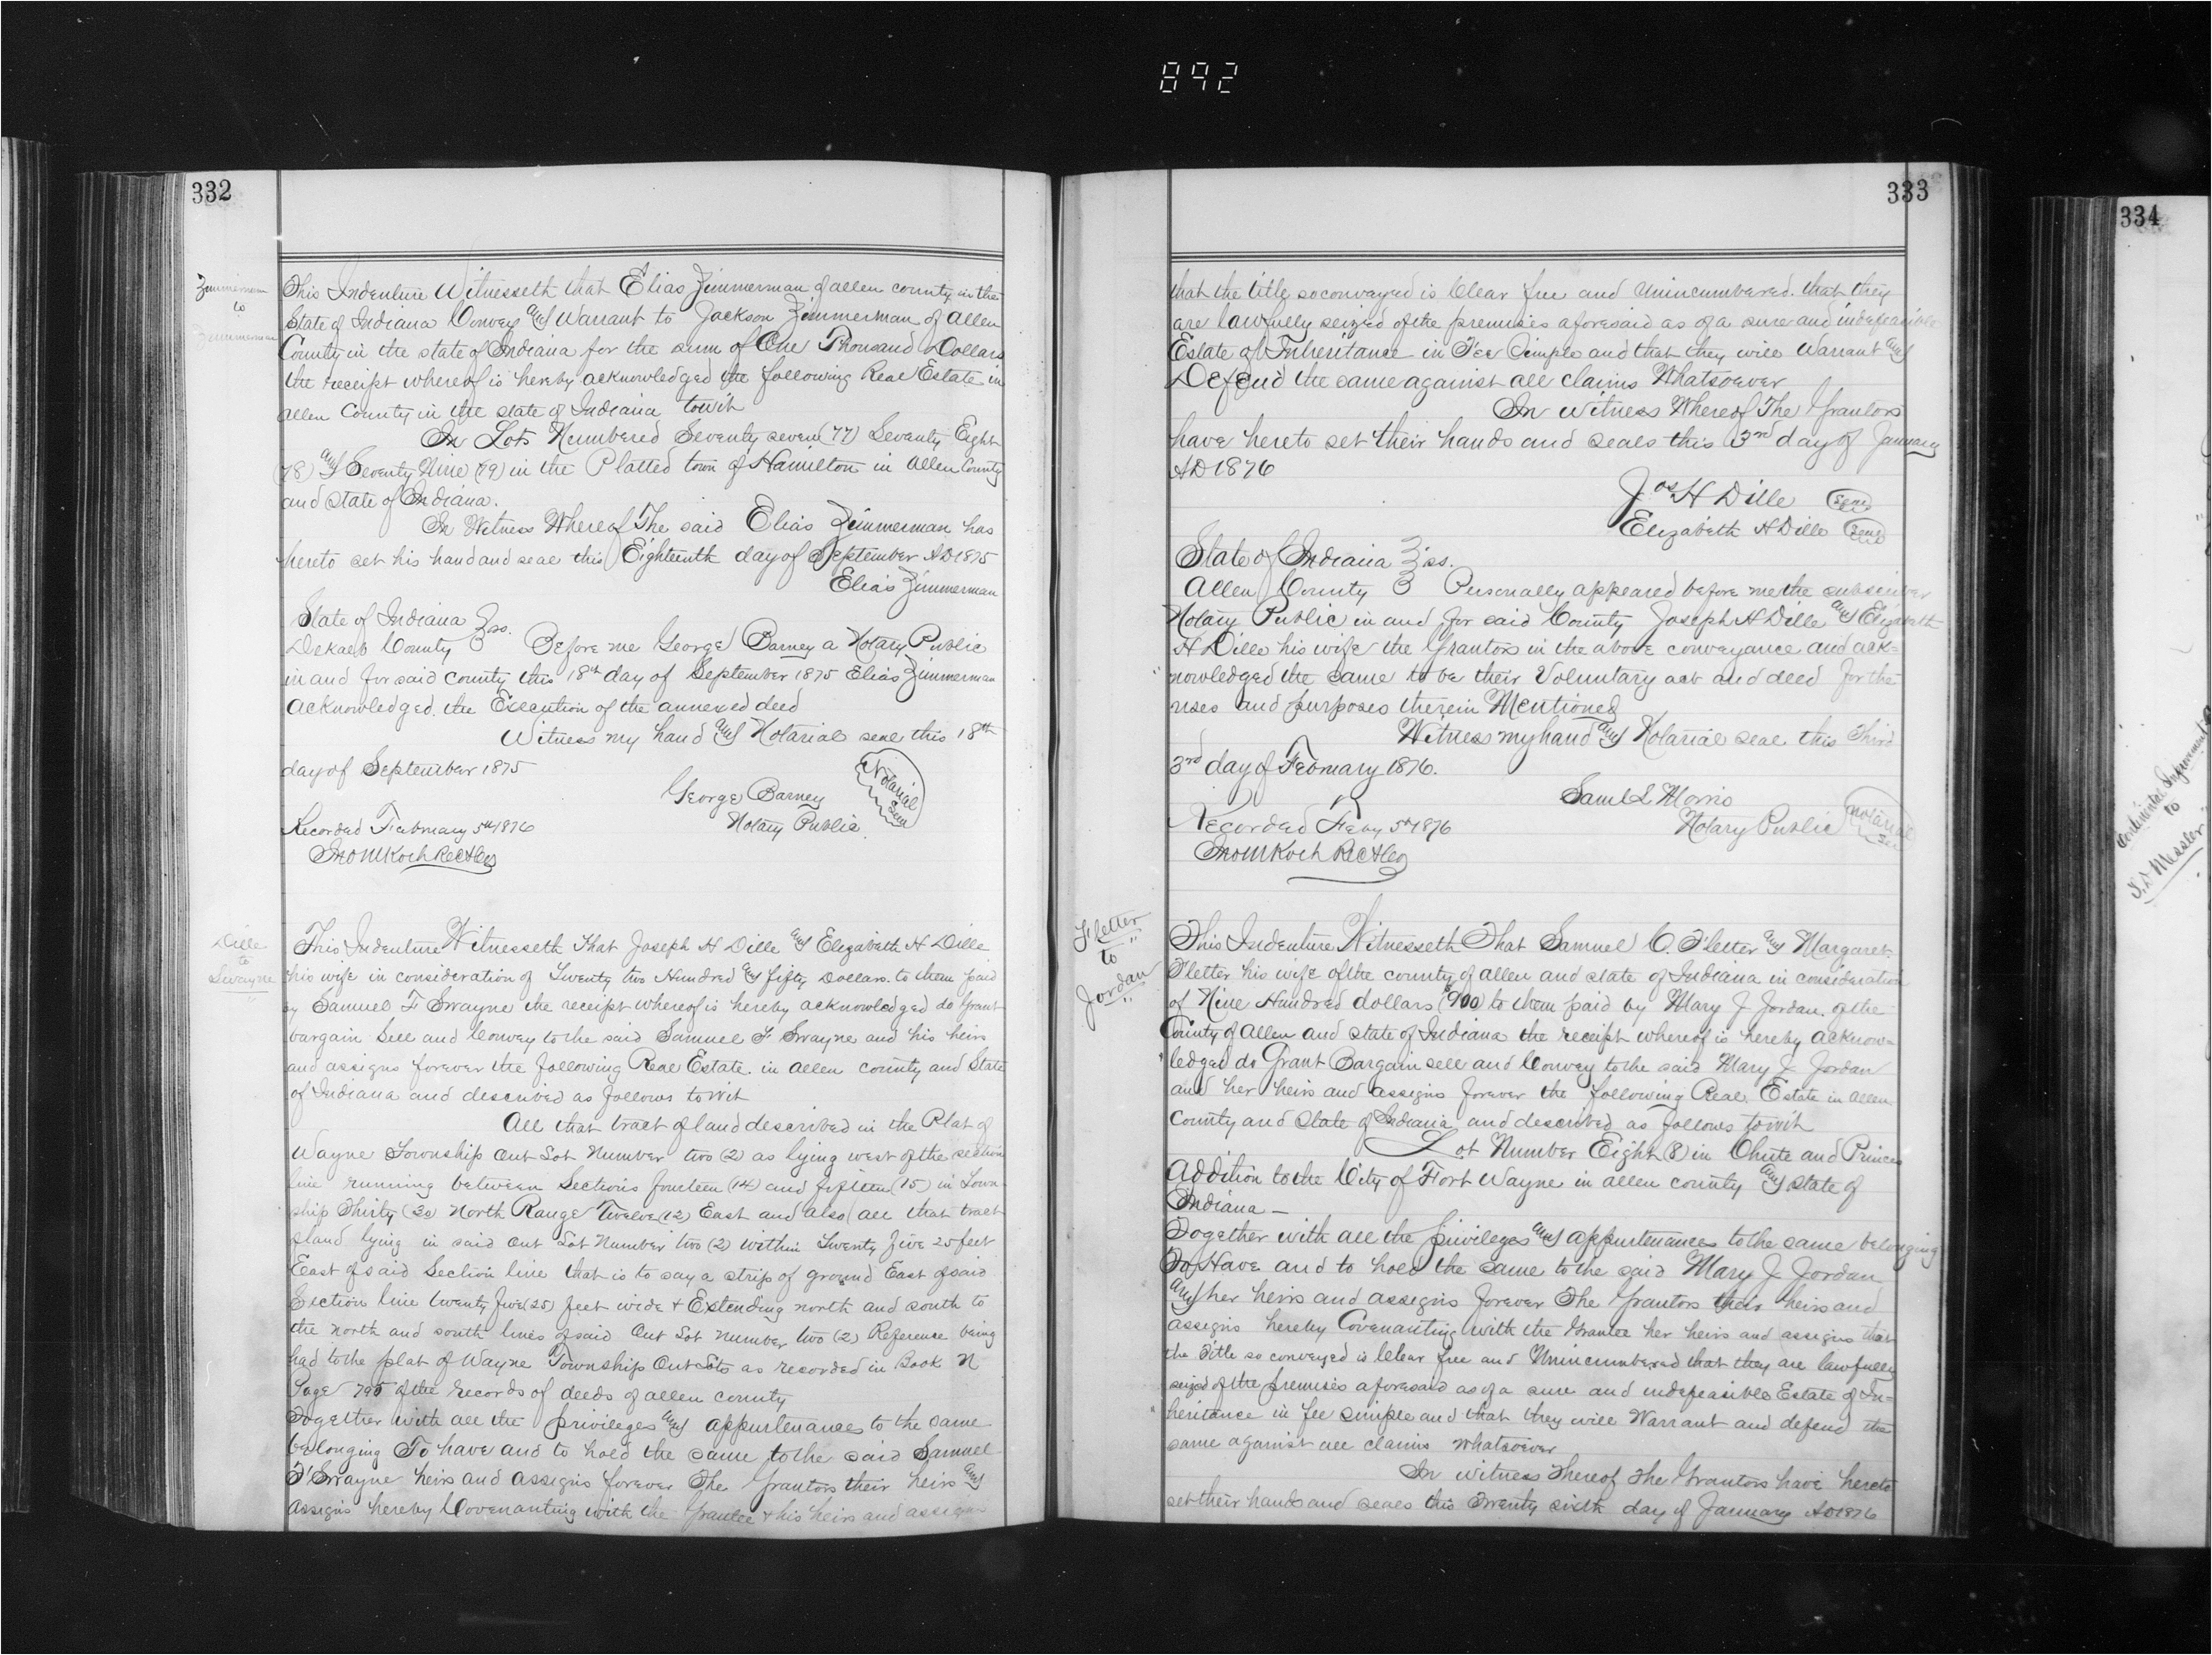 892
332
Zimmerman
to
Zimmerman
This Indenture Witnesseth that Elias Zimmerman of allen county in the
State of Indiana Convey and Warrant to Jackson Zimmerman of Allen
County in the state of Indiana for the sum of One Thousand Dollars
the receipt whereof is hereby acknowledged the following Real Estate in
allen County in the state of Indiana towit
In Lots Numbered Seventy seven (77) Seventy Eight
78) and Seventy Nine (79) in the Platted town of Hamilton in Allen County
and state of Indiana.
In Witness Whereof The said Elias Zimmerman has
hereto set his hand and seal this Eighteenth day of September AD 1875
Elias Zimmerman
State of Indiana } ss.
Dekalb County } Before me George Barney a Notary Public
in and for said county this 18th day of September 1875 Elias Zimmerman
acknowledged the Execution of the annexed deed
Witness my hand and Notarial seal this 18th
day of September 1875
George Barney
Notary Public
Notarial
Seal
Recorded February 5th 1876
Jno M Koch Rec A Co
Dille
to
Swayne
This Indenture Witnesseth That Joseph H Dille and Elizabeth H Dille
his wife in consideration of Twenty two Hundred and fifty Dollars. to them paid
by Samuel F Swayne the receipt whereof is hereby acknowledged do Grant
bargain Sell and Convey to the said Samuel F Swayne and his heirs
and assigns forever the following Real Estate. in allen county and State
of Indiana and described as follows towit
All that tract of land described in the Plat of
Wayne Township Out Lot Number two (2) as lying west of the section
line running between Sections fourteen (14) and fifteen (15) in Town
ship Thirty (30) North Range Twelve (12) East and also all that tract
of land lying in said Out Lot Number two (2) within Twenty five 25 feet
East of said Section line that is to say a strip of ground East of said
Section line twenty five (25) feet wide & Extending north and south to
the north and south lines of said Out Lot number two (2) Reference being
had to the plat of Wayne Township Out Lots as recorded in Book N
Page 795 of the records of deeds of allen county
Together with all the privileges and appurtenances to the same
belonging To have and to hold the same to the said Samuel
F Swayne heirs and assigns forever The Grantors their heirs and
assigns hereby Covenanting with the Grantee & his heirs and assigns
333
that the title so conveyed is Clear free and Unincumbered. that they
are lawfully seized of the premises aforesaid as of a sure and indefeasible
Estate of Inheritance in Fee Simple and that they will Warrant and
Defend the same against all claims Whatsoever
In witness Whereof The Grantors
have hereto set their hands and seals this 3rd day of January
AD 1876
Jos H Dille Seal
Elizabeth H Dille Seal
State of Indiana } ss.
Allen County } Personally appeared before me the subscriber
Notary Public in and for said County Joseph H Dille and Elizabeth
H Dille his wife the Grantors in the above conveyance and ack=
nowledged the same to be their Voluntary act and deed for the
uses and purposes therein Mentioned
Witness my hand and Notarial seal this Third
3rd day of February 1876.
Saml L Morris
Notary Public
Notarial
Seal
Recorded Feby 5th 1876
Jno M Koch Rec A Co
Fletter
to
Jordan
This Indenture Witnesseth That Samuel C. Fletter and Margaret
Fletter his wife of the county of allen and state of Indiana in consideration
of Nine Hundred dollars ($900) to them paid by Mary J Jordan. of the
County of Allen and state of Indiana the receipt whereof is hereby acknow=
ledged do Grant Bargain sell and Convey to the said Mary J Jordan
and her heirs and assigns forever the following Real Estate in allen
County and State of Indiana and described as follows towit
Lot Number Eight (8) in Chute and Princes
Addition to the City of Fort Wayne in allen county and state of
Indiana —
Together with all the privileges and appurtenances to the same belonging
To Have and to hold the same to the said Mary J Jordan
and her heirs and assigns forever The Grantors their heirs and
assigns hereby Covenanting with the Grantee her heirs and assigns that
the Title so conveyed is Clear free and Unincumbered that they are lawfully
seized of the premises aforesaid as of a sure and indefeasible Estate of In=
heritance in fee simple and that they will Warrant and defend the
same against all claims whatsoever
In witness Whereof The Grantors have hereto
set their hands and seals this Twenty sixth day of January AD 1876
334
to
J. D Messler